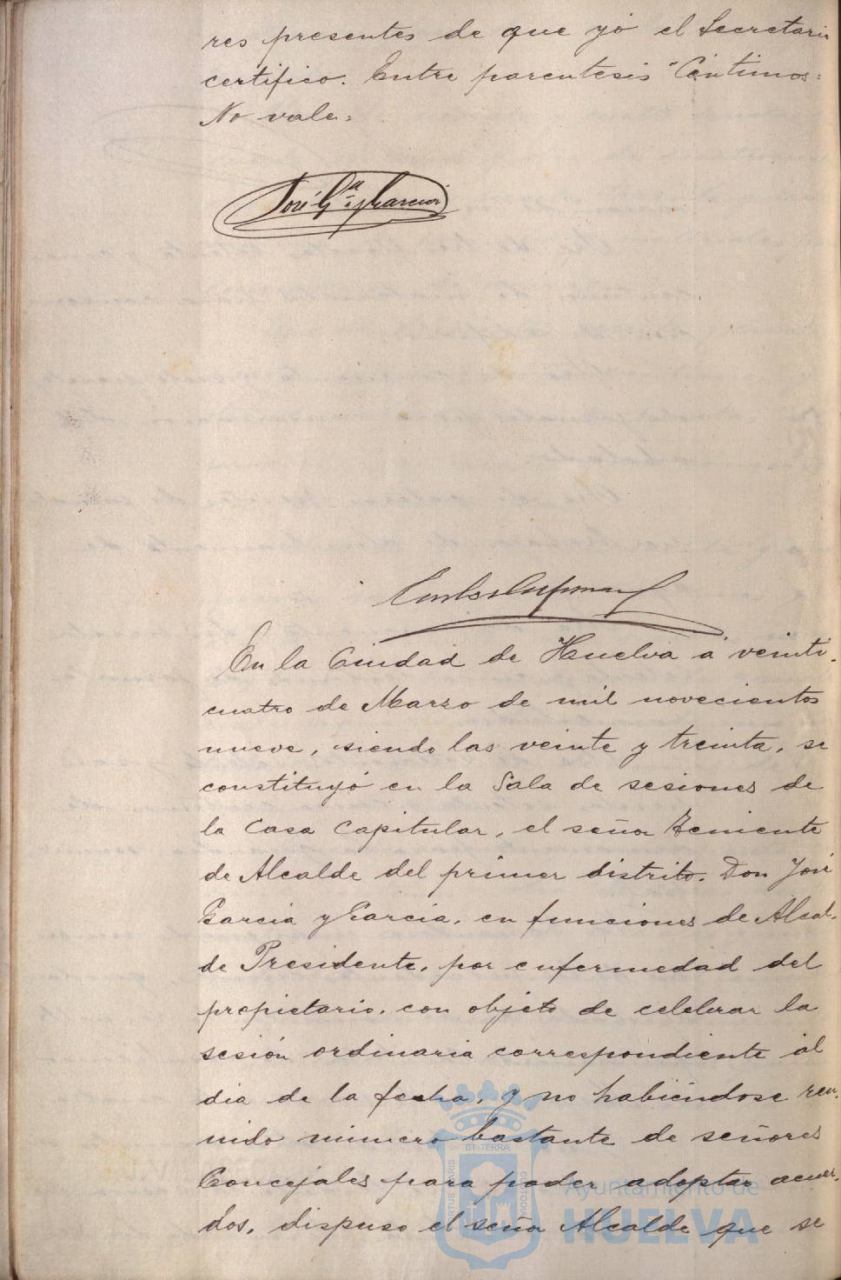 res presentes de que yó el Secretario
certifico. Entre parentesis "Céntimos=
No vale=
José Gª y García
En la Ciudad de Huelva á veinti-
cuatro de Marzo de mil novecientos
nueve, siendo las veinte y treinta, se
constituyó en la Sala de sesiones de
la Casa Capitular, el señor Teniente
de Alcalde del primer distrito, Don José
García y García, en funciones de Alcal-
de Presidente, por enfermedad del
propietario, con objeto de celebrar la
sesión ordinaria correspondiente al
dia de la fecha, y no habiéndose reu-
nido número bastante de señores
Concejales para poder adoptar acuer-
dos, dispuso el señor Alcalde que se
Ayuntamiento de
HUELVA